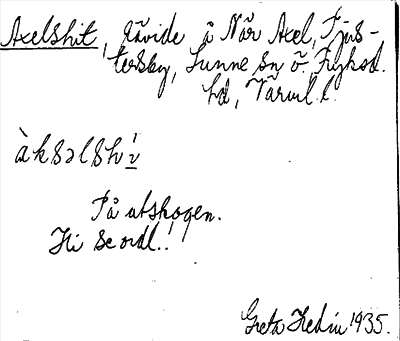 Axelshit, råvide å När Axel, Tjus-
tersby, Sunne sn ö. Fryksd.
hd, Värml. l.
àksəlshi̍
På utskogen.
Hi se ordl..
Greta Hedin 1935.